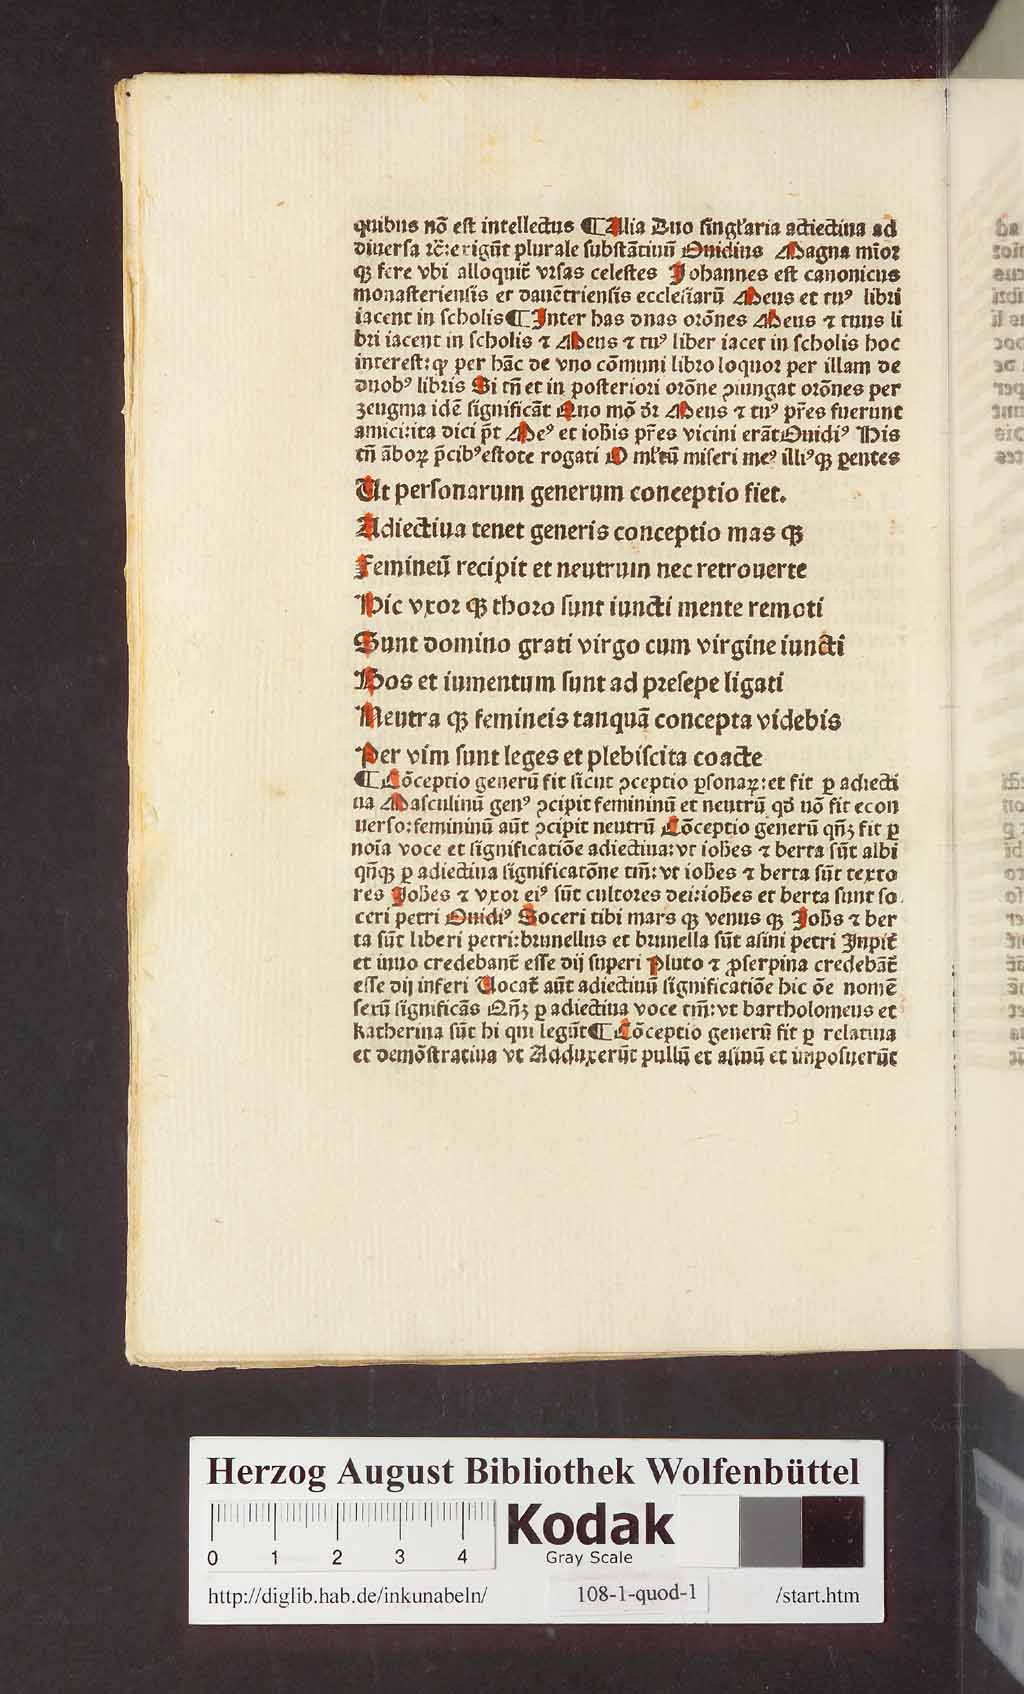 quibus nō est intellectus ¶ Alia Duo singl'aria adiectiua ad
diuersa ⁊c̄: exigūt plurale substātiuū Ouidius Magna mīor
qꝫ fere vbi alloquit᷑ vrsas celestes Johannes est canonicus
monasteriensis et dauētriensis ecclesiarū Meus et tuꝰ libri
iacent in scholis ¶ Inter has duas orōnes Meus ⁊ tuus li
bri iacent in scholis ⁊ Meus ⁊ tuꝰ liber iacet in scholis hoc
interest: qꝫ per hāc de vno cōmuni libro loquor per illam de
duobꝰ libris Si tn̄ et in posteriori orōne ꝯiungat orōnes per
zeugma idē significāt Quo mō dr̄ Meus ⁊ tuꝰ pr̄es fuerunt
amici: ita dici p̄t Meꝰ et ioh̄is pr̄es vicini erāt Ouidiꝰ His
tn̄ āboꝝ p̄cibꝰ estote rogati O ml'tū miseri meꝰ illiꝰqꝫ ꝑentes
Ut personarum generum conceptio fiet.
Adiectiua tenet generis conceptio mas qꝫ
Femineū recipit et neutrum nec retrouerte
Hic vxor qꝫ thoro sunt iuncti mente remoti
Sunt domino grati virgo cum virgine iuncti
Bos et iumentum sunt ad presepe ligati
Neutra qꝫ femineis tanquā concepta videbis
Per vim sunt leges et plebiscita coacte
¶ Cōceptio generū fit sicut ꝯceptio ꝑsonaꝝ: et fit ꝑ adiecti
ua Masculinū genꝰ ꝯcipit femininū et neutrū qd̄ nō fit econ
uerso: femininū aūt ꝯcipit neutrū Cōceptio generū qn̄qꝫ fit ꝑ
noīa voce et significatiōe adiectiua: vt ioh̄es ⁊ berta sūt albi
qn̄qꝫ ꝑ adiectiua significatōne tm̄: vt ioh̄es ⁊ berta sūt texto
res Joh̄es ⁊ vxor eiꝰ sūt cultores dei: ioh̄es et berta sunt so
ceri petri Ouidiꝰ Soceri tibi mars qꝫ venus qꝫ Joh̄s ⁊ ber
ta sūt liberi petri: brunellus et brunella sūt asini petri Jupit᷑
et iuno credebant᷑ esse dij superi Pluto ⁊ ꝓserpina credebāt᷑
esse dij inferi Uocat᷑ aūt adiectiuū significatiōe hic oē nomē
 significās Qn̄qꝫ ꝑ adiectiua voce tm̄: vt bartholomeus et
katherina sūt hi qui legūt ¶ Cōceptio generū fit ꝑ relatiua
et demōstratiua vt Adduxerūt pullū et asinū et imposuerūt
Herzog August Bibliothek Wolfenbüttel
0 1 2 3 4
Kodak
Gray Scale
http://diglib.hab.de/inkunabeln/ 108-1-quod-1 /start.htm